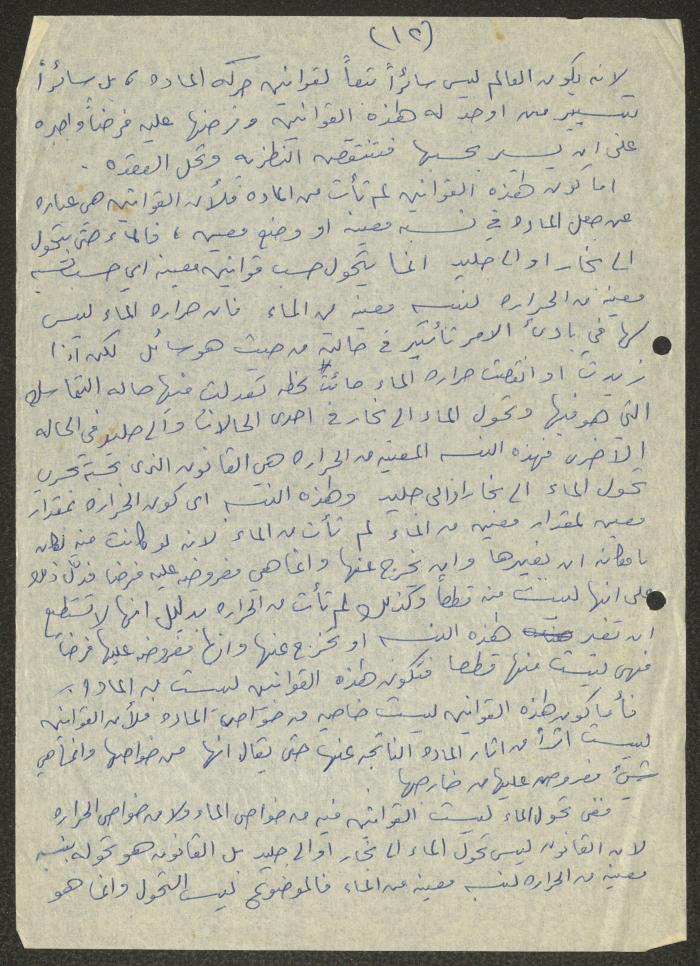 (١٢)
لانه يكون العالم ليس سائراً تبعاً لقوانين حركة الماده ، بل سائراً
بتسيير من اوجد له هذه القوانين وفرضها عليه فرضاً واجبره
على ان يسير بحسبها فتنتقض النظريه وتحل العقده .
اما كون هذه القوانين لم تأت من الماده فلأن القوانين هي عباره
عن جعل الماده في نسبه معينه او وضع معين ، فالماء حتى يتحول
الى بخار او الى جليد انما يتحول حسب قوانين معينه اي حسب نسبه
معينه من الحراره لنسبه معينه من الماء فان حراره الماء ليس
لها في بادئ الامر تأثير في حالته من حيث هو سائل لكن اذا
زيدت او انقصت حراره الماء جائت لحظه تعدلت فيها حاله التماسك
التي هو فيها وتحول الماء الى بخار في احدى الحالات والى جليد في الحاله
الاخرى فهذه النسبه المعينه من الحراره هي القانون الذي بحسبه يجري
تحول الماء الى بخار او الى جليد وهذه النسبه اي كون الحراره بمقدار
معين لمقدار معين من الماء لم تأت من الماء لانه لو كانت منه لكان
بامكانه ان يغيرها وان يخرج عنها وانما هي مفروضه عليه فرضا فدل ذلك
على انها ليست منه قطعاً وكذلك لم تأت من الحراره بدليل انها لا تستطيع
ان تغير هذه النسبه او تخرج عنها وانها مفروضه عليها فرضاً
فهي ليست منها قطعا فتكون هذه القوانين ليست من الماده .
فأما كون هذه القوانين ليست خاصيه من خواص الماده فلأن القوانين
ليست اثراً من اثار الماده الناتجه عنها حتى يقال انها من خواصها وانما هي
شيئ مفروض عليها من خارجها
ففي تحول الماء ليست القوانين فيه من خواص الماء ولا من خواص الحراره
لان القانون ليس تحول الماء الى بخار او الى جليد بل القانون هو تحوله بنسبه
معينه من الحراره لنسبه معينه من الماء فالموضوع ليس التحول وانما هو